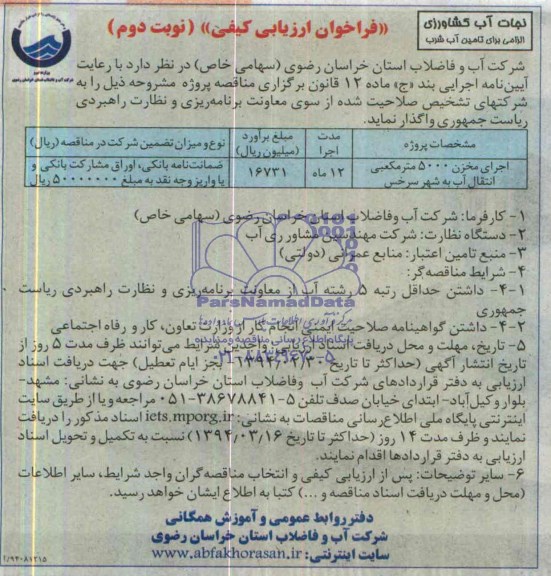 نجات آب کشاورزی
الزامی برای تامین آب شرب
«فراخوان ارزیابی کیفی» (نوبت دوم)
شرکت آب و فاضلاب استان خراسان رضوی (سهامی خاص) در نظر دارد با رعایت
آیین‌نامه اجرایی بند «ج» ماده ۱۲ قانون برگزاری مناقصه پروژه مشروحه ذیل را به
شرکتهای تشخیص صلاحیت شده از سوی معاونت برنامه‌ریزی و نظارت راهبردی
ریاست جمهوری واگذار نماید.
مشخصات پروژه | مدت اجرا | مبلغ برآورد (میلیون ریال) | نوع و میزان تضمین شرکت در مناقصه (ریال)
اجرای مخزن ۵۰۰۰ مترمکعبی و انتقال آب به شهر سرخس | ۱۲ ماه | ۱۶۷۳۱ | ضمانت‌نامه بانکی، اوراق مشارکت بانکی و یا واریز وجه نقد به مبلغ ۵۰۰۰۰۰۰۰۰ ریال
۱- کارفرما: شرکت آب وفاضلاب استان خراسان رضوی (سهامی خاص)
۲- دستگاه نظارت: شرکت مهندسین مشاور ری آب
۳- منبع تامین اعتبار: منابع عمرانی (دولتی)
۴- شرایط مناقصه‌گر:
۴-۱- داشتن حداقل رتبه ۵ رشته آب از معاونت برنامه‌ریزی و نظارت راهبردی ریاست
جمهوری
۴-۲- داشتن گواهینامه صلاحیت ایمنی انجام کار از وزارت تعاون، کار و رفاه اجتماعی
۵- تاریخ، مهلت و محل دریافت اسناد ارزیابی: واجدین شرایط می‌توانند ظرف مدت ۵ روز از
تاریخ انتشار آگهی (حداکثر تا تاریخ بجز ایام تعطیل) جهت دریافت اسناد
ارزیابی به دفتر قراردادهای شرکت آب وفاضلاب استان خراسان رضوی به نشانی: مشهد-
بلوار وکیل‌آباد- ابتدای خیابان صدف تلفن ۵-۳۸۶۷۸۸۴۱-۰۵۱ مراجعه و یا از طریق سایت
اینترنتی پایگاه ملی اطلاع‌رسانی مناقصات به نشانی: iets.mporg.ir اسناد مذکور را دریافت
نمایند و ظرف مدت ۱۴ روز (حداکثر تا تاریخ ۱۳۹۴/۰۳/۱۶) نسبت به تکمیل و تحویل اسناد
ارزیابی به دفتر قراردادها اقدام نمایند.
۶- سایر توضیحات: پس از ارزیابی کیفی و انتخاب مناقصه‌گران واجد شرایط، سایر اطلاعات
(محل و مهلت دریافت اسناد مناقصه و ...) کتبا به اطلاع ایشان خواهد رسید.
دفتر روابط عمومی و آموزش همگانی
شرکت آب و فاضلاب استان خراسان رضوی
سایت اینترنتی: www.abfakhorasan.ir
ParsNamadData